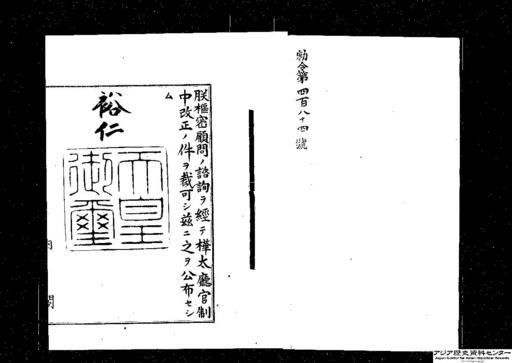 勅令第四百八十四號
朕樞密顧問ノ諮詢ヲ經テ樺太廳官制
中改正ノ件ヲ裁可シ茲ニ之ヲ公布セシ
ム
裕仁
天皇
御璽
内閣
アジア歴史資料センター
Japan Center for Asian Historical Records